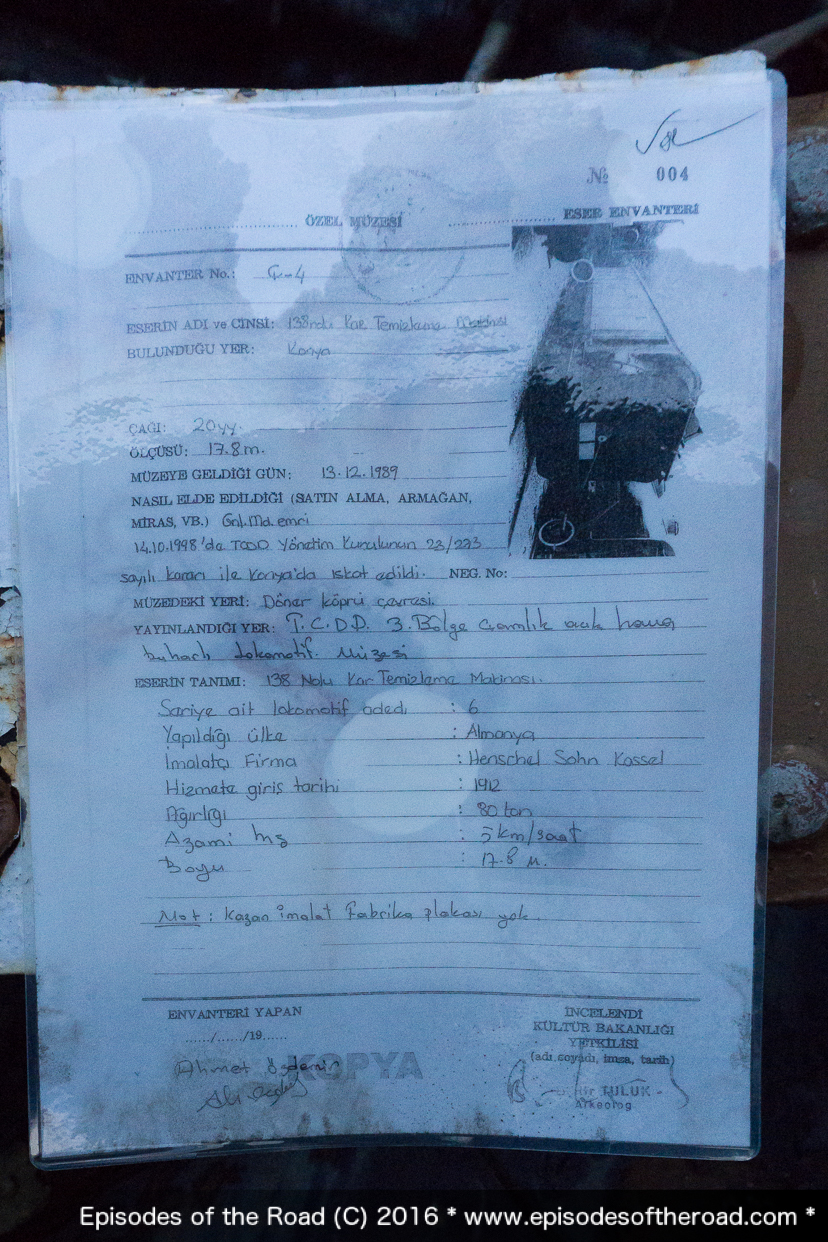 № 004
ÖZEL MÜZESİ ESER ENVANTERİ
ENVANTER No.: Ç-4
ESERİN ADI ve CİNSİ: 138nolu Kar Temizleme Makinası
BULUNDUĞU YER: Konya
ÇAĞI: 20yy.
ÖLÇÜSÜ: 17.8m.
MÜZEYE GELDİĞİ GÜN: 13.12.1989
NASIL ELDE EDİLDİĞİ (SATIN ALMA, ARMAĞAN,
MİRAS, VB.) Gnl.Md. emri
14.10.1998'de TCDD Yönetim Kurulunun 23/273
sayılı kararı ile Konya'da iskat edildi. NEG. No:
MÜZEDEKİ YERİ: Döner köprü çevresi.
YAYINLANDIĞI YER: T.C.D.D. 3.Bölge Çamlık açık hava
buharlı Lokomotif. Müzesi
ESERİN TANIMI: 138 Nolu Kar Temizleme Makinası.
Seriye ait lokomotif adedi : 6
Yapıldığı ülke : Almanya
İmalatçı Firma : Henschel Sohn Kassel
Hizmete giriş tarihi : 1912
Ağırlığı : 80 ton
Azami hız : 5 km/saat
Boyu : 17.8 M.
Not : Kazan imalat Fabrika plakası yok.
ENVANTERİ YAPAN
....../....../19......
Ahmet Özdemir
KOPYA
İNCELENDİ
KÜLTÜR BAKANLIĞI
YETKİLİSİ
(adı, soyadı, imza, tarih)
TULUK
Arkeolog
Episodes of the Road (C) 2016 * www.episodesoftheroad.com *